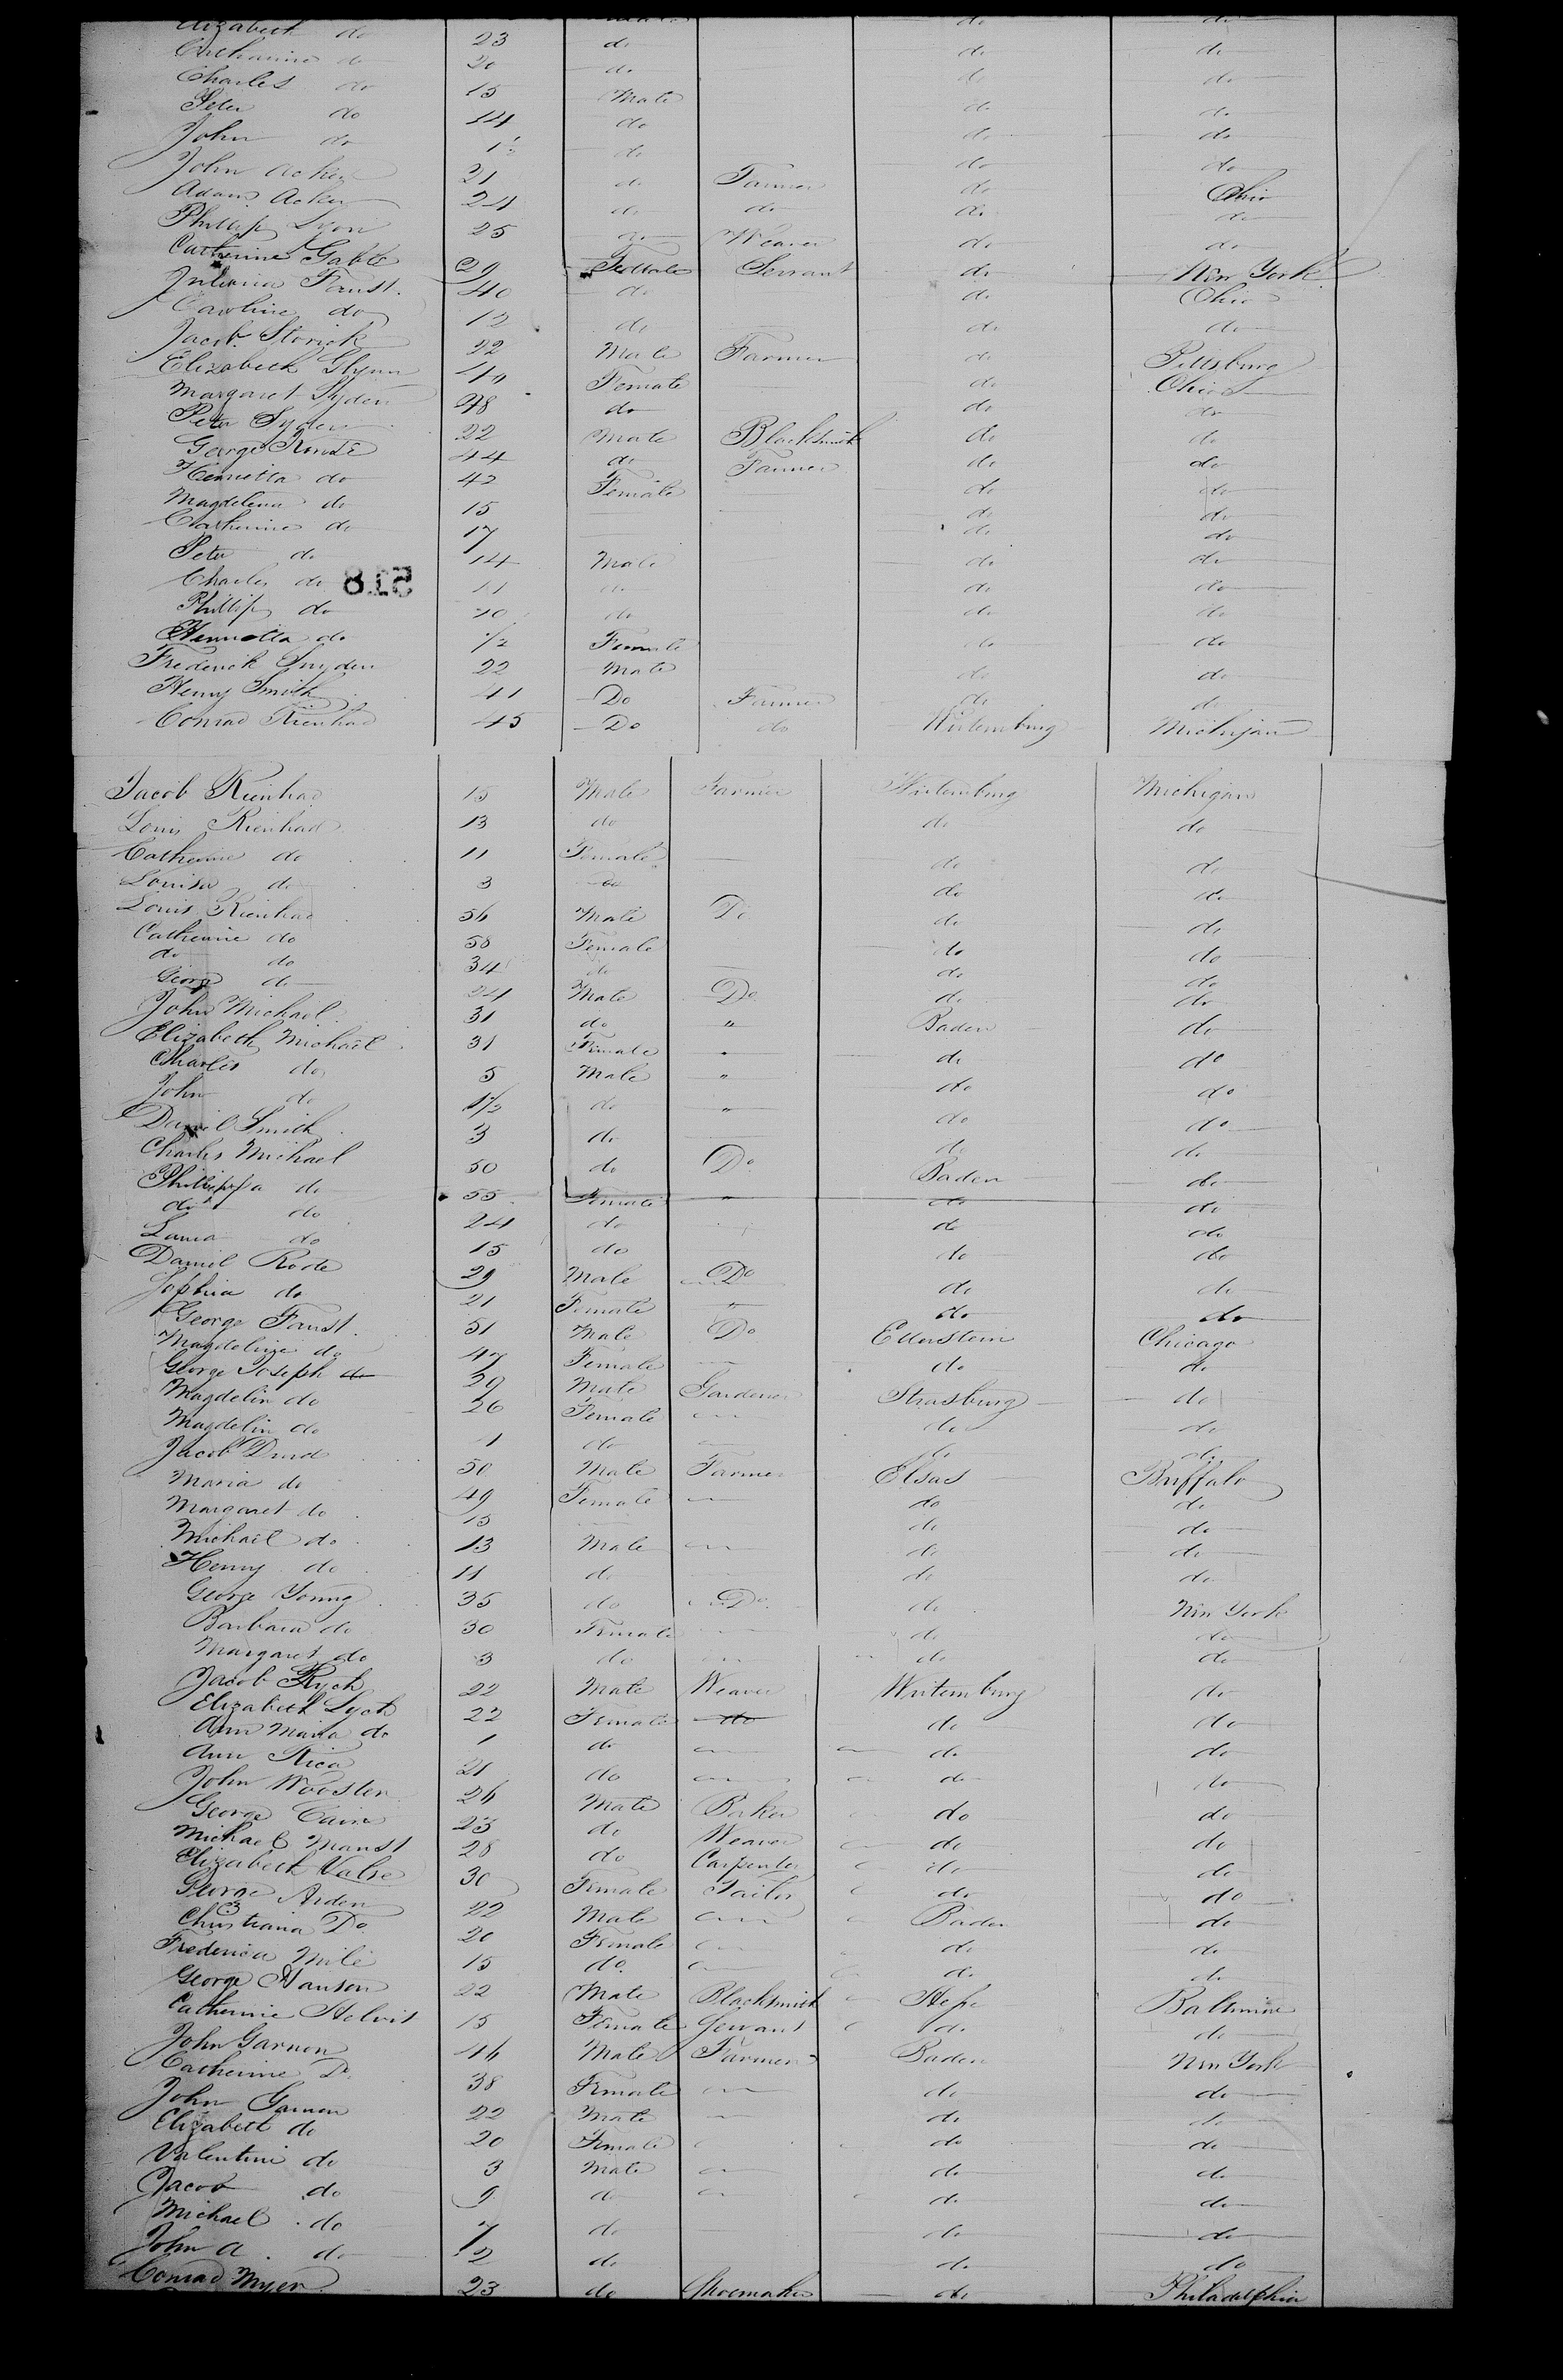 Elizabeth do do do
Catharine do 23 do do do
Charles do 20 do do do
Peter do 15 Male do do
John do 14 do do do
1½ do do do
John Acker 21 do Farmer do Ohio
Adam Acker 24 do do do do
Phillip Lyon 25 do Weaver do do
Catherine Gable 29 Female Servant do New York
Juliana Faust 40 do do Ohio
Caroline do 12 do do do
Jacob Storick 22 Male Farmer do Pittsburg
Elizabeth Glynn 40 Female do Ohio
Margaret Syden 48 do do do
Peter Syden 22 Male Blacksmith do do
George 44 do Farmer do do
Henrietta do 42 Female do do
Magdelena do 15 do do
Catherine do 17 do do
Peter do 14 Male do do
Charles do 11 do do do
518
Phillip do 10 do do do
Henrietta do ½ Female do do
Frederick Snyden 22 Male do do
Henry Smith 41 Do Farmer do do
Conrad Rienhad 45 Do do Wirtemburg Michigan
Jacob Rienhad 15 Male Farmer Wirtemburg Michigan
Louis Rienhad 13 do do do
Catherine do 11 Female do do
Louisa do 3 do do do
Louis Rienhad 56 Male Do do do
Catherine do 58 Female do do
do do 34 do do do
George do 24 Male Do do do
John Michael 31 do " Baden do
Elizabeth Michael 31 Female " do do
Charles do 5 Male " do do
John do 1½ do " do do
Daniel Smith 3 do do do
Charles Michael 50 do Do Baden do
Phillippa do 55 Female " do do
do do 24 do do do
Laura do 15 do do do
Daniel Rode 29 Male Do do do
Sophia do 21 Female " do do
George Faust 51 Male Do Ederstein Chicago
Magdeline do 47 Female do do
George Joseph do 29 Male Gardener Strasburg do
Magdelin do 26 Female do do
Magdelin do 1 do do do
Jacob Durd 50 Male Farmer Elsas Buffalo
Maria do 49 Female do do
Margaret do 15 do do
Michael do 13 Male do do
Henry do 11 do do do
George Young 35 do Do do New York
Barbara do 30 Female do do
Margaret do 3 do do do
Jacob Rych 22 Male Weaver Wirtemburg do
Elizabeth Lych 22 Female do do do
Ann Maria do 1 do do do
Ann Rica 21 do do do
John Wooster 26 Male Baker do do
George Cain 23 do Weaver do do
Michael Manst 28 do Carpenter do do
Elizabeth Valse 30 Female Tailor do do
George Arden 22 Male Baden do
Christiana Do 20 Female do do
Frederica Mile 15 do do do
George Hanson 22 Male Blacksmith Hesse Baltimore
Catherine Helvit 15 Female Servant do do
John Garnon 46 Male Farmer Baden New York
Catherine Do 38 Female do do
John Garnon 22 Male do do
Elizabeth do 20 Female do do
Valentine do 3 Male do do
Jacob do 9 do do do
Michael do 7 do do do
John A. do 2 do do do
Conrad Myer 23 do Shoemaker do Philadelphia